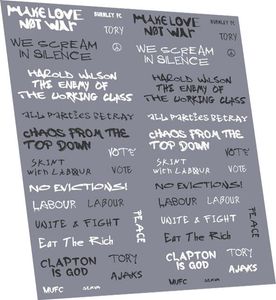 MAKE LOVE
NOT WAR
BURNLEY FC
TORY
WE SCREAM
IN SILENCE
HAROLD WILSON
THE ENEMY OF
THE WORKING CLASS
ALL PARTIES BETRAY
CHAOS FROM THE
TOP DOWN
VOTE
SKINT
with LABOUR
VOTE
NO EVICTIONS!
LABOUR
LABOUR
UNITE & FIGHT
PEACE
Eat The Rich
CLAPTON
IS GOD
TORY
AJAKS
MUFC
MAKE LOVE
NOT WAR
BURNLEY FC
TORY
WE SCREAM
IN SILENCE
HAROLD WILSON
THE ENEMY OF
THE WORKING CLASS
ALL PARTIES BETRAY
CHAOS FROM THE
TOP DOWN
VOTE
SKINT
with LABOUR
VOTE
NO EVICTIONS!
LABOUR
LABOUR
UNITE & FIGHT
PEACE
Eat The Rich
CLAPTON
IS GOD
TORY
AJAKS
MUFC